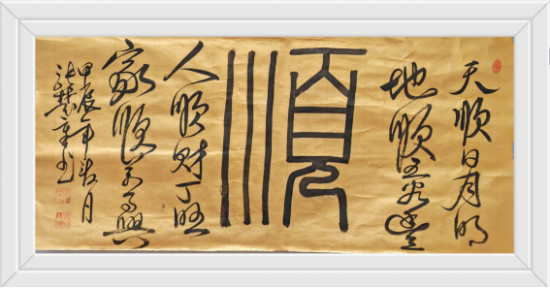 天順日月明
地順五谷豐
順
人順財丁旺
家順萬事興
甲辰年月